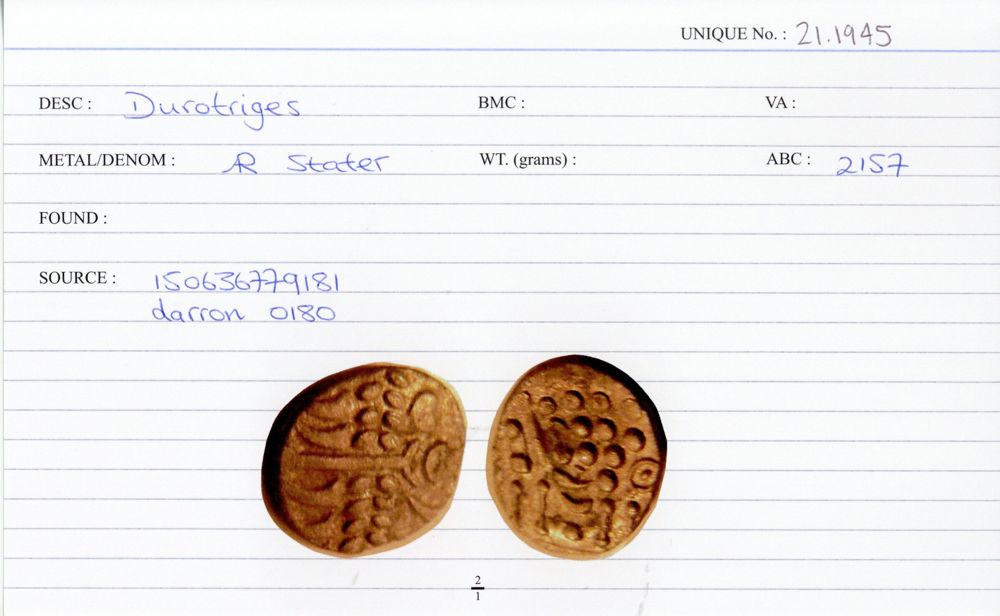 UNIQUE No. : 21.1945
DESC : Durotriges BMC : VA :
METAL/DENOM : AR Stater WT. (grams) : ABC : 2157
FOUND :
SOURCE : 150636779181
darron 0180
2
1